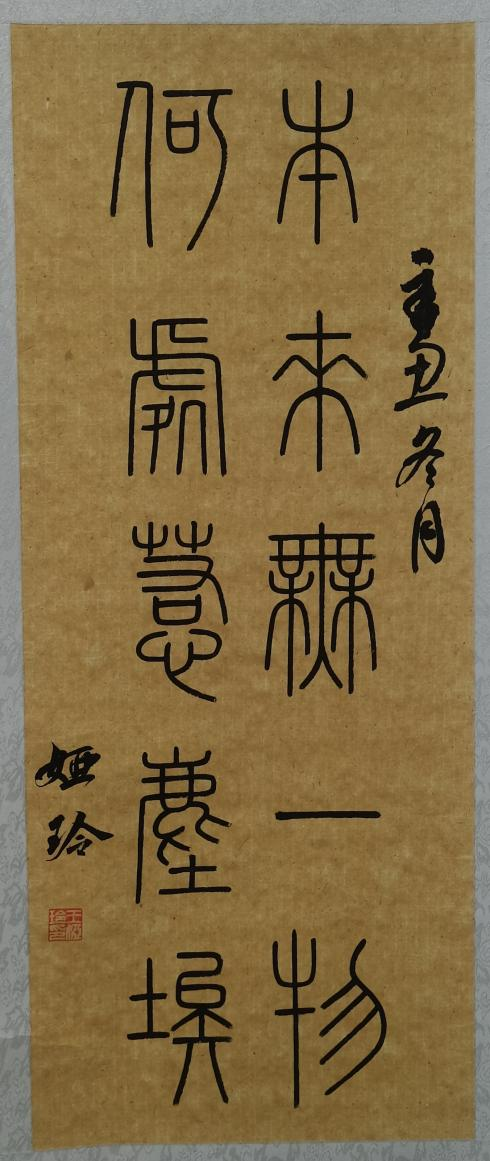 辛丑冬月
本來無一物
何處惹塵埃
娅玲